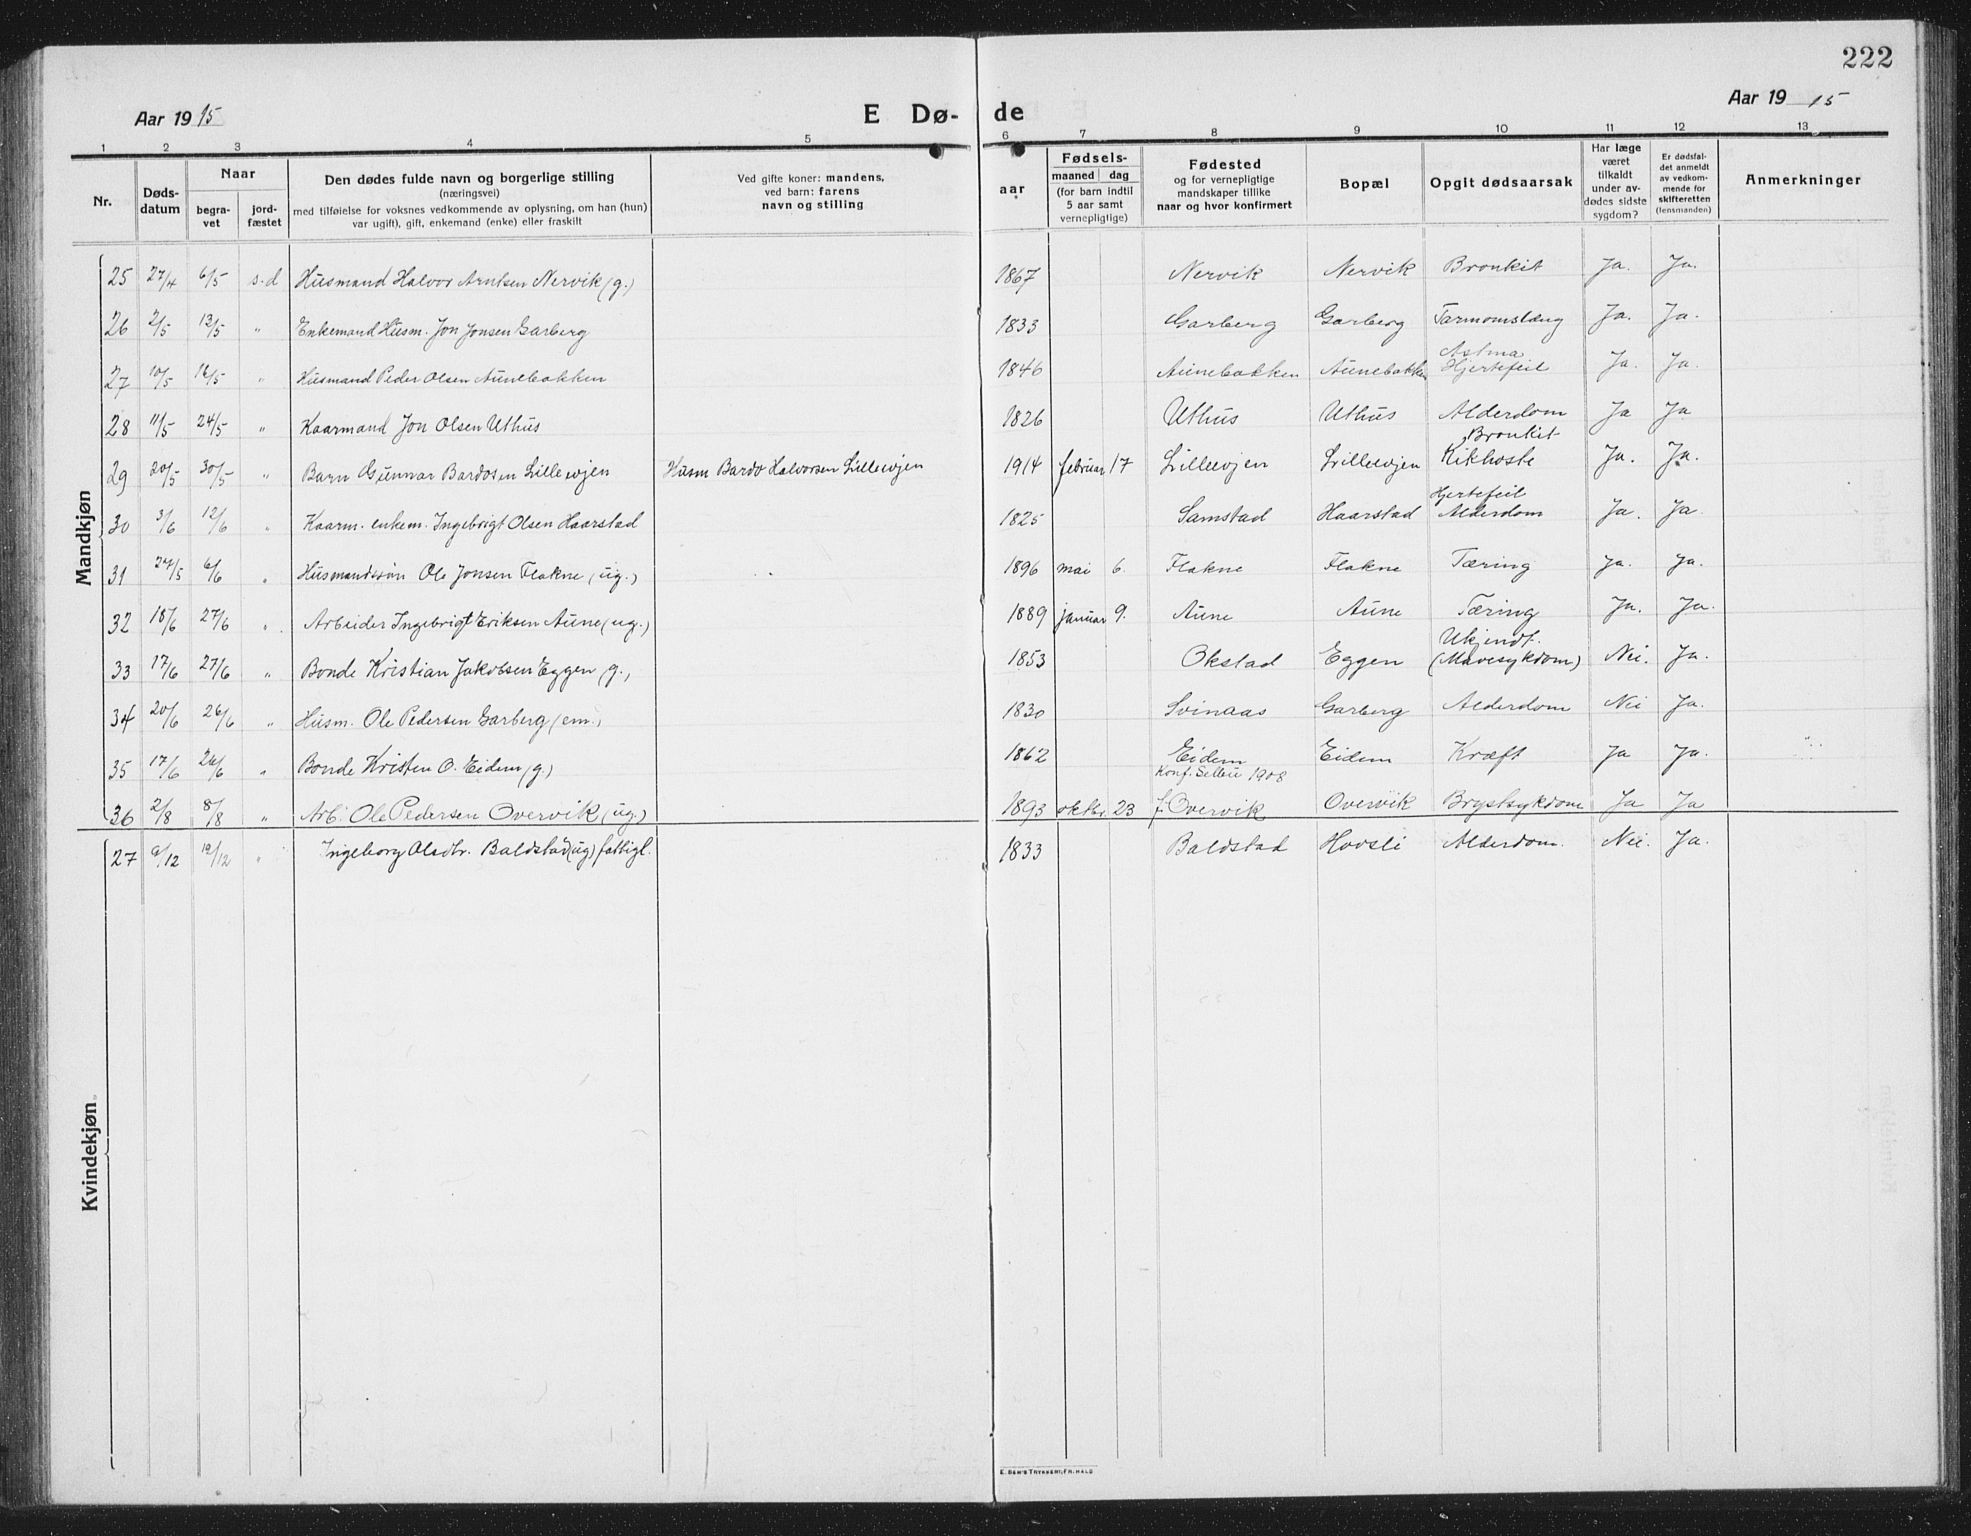 222
Aar 1915 E Dø- de Aar 1915
1 2 3 4 5 6 7 8 9 10 11 12 13
Nr.
Døds-
datum
Naar
begra-
vet
jord-
fæstet
Den dødes fulde navn og borgerlige stilling
(næringsvei)
med tilføielse for voksnes vedkommende av oplysning, om han (hun)
var ugift), gift, enkemand (enke) eller fraskilt
Ved gifte koner: mandens,
ved barn: farens
navn og stilling
aar
Fødsels-
maaned dag
(for barn indtil
5 aar samt
vernepligtige)
Fødested
og for vernepligtige
mandskaper tillike
naar og hvor konfirmert
Bopæl
Opgit dødsaarsak
Har læge
været
tilkaldt
under av-
dødes sidste
sygdom?
Er dødsfal-
det anmeldt
av vedkom-
mende for
skifteretten
(lensmanden)
Anmerkninger
Mandkjøn
25 27/4 6/5 s.d Husmand Halvor Arntsen Nervik (g.) 1867 Nervik Nervik Bronkit Ja. Ja.
26 2/5 13/5 " Enkemand Husm. Jon Jonsen Garberg 1833 Garberg Garberg Tarmomslæng Ja. Ja.
27 10/5 16/5 " Husmand Peder Olsen Aunebakken 1846 Aunebakken Aunebakken Astma Hjertefeil Ja. Ja.
28 11/5 24/5 " Kaarmand Jon Olsen Uthus 1826 Uthus Uthus Alderdom Ja Ja
29 20/5 30/5 " Barn Gunnar Bardosen Lilleevjen Husm Bardo Halvorsen Lilleevjen 1914 februar 17 Lilleevjen Lilleevjen Bronkit Kikhoste Ja. Ja.
30 3/6 12/6 " Kaarm. enkem. Ingebrigt Olsen Haarstad 1825 Samstad Haarstad Hjertefeil Alderdom Ja. Ja
31 27/5 6/6 " Husmandssøn Ole Jonsen Flakne (ug.) 1896 mai 6. Flakne Flakne Tæring Ja. Ja.
32 18/6 27/6 " Arbeider Ingebrigt Eriksen Aune (ug.) 1889 januar 9. Aune Aune Tæring Ja. Ja.
33 17/6 27/6 " Bonde Kristian Jakobsen Eggen (g.) 1853 Okstad Eggen Ukjendt. (Mavesykdom) Nei. Ja.
34 20/6 26/6 " Husm. Ole Pedersen Garberg (em.) 1830 Svinaas Garberg Alderdom Nei Ja.
35 17/6 26/6 " Bonde Kristen O. Eidem (g.) 1862 Eidem Eidem Kræft Ja Ja.
Konf. Selbu 1908
36 2/8 8/8 " Arb. Ole Pedersen Overvik (ug.) 1893 oktbr. 23 f. Overvik Overvik Brystsykdom Ja Ja
Kvindekjøn
27 9/12 19/12 " Ingeborg Olsdtr. Baldstad (ug) fattigl. 1833 Baldstad Hovsli Alderdom. Nei. Ja.
E. SEM'S TRYKKERI, FR.HALD